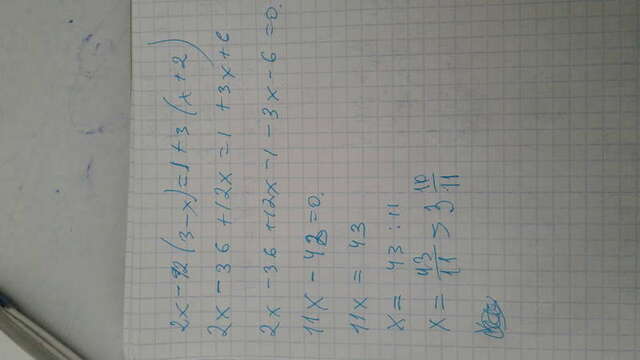 2x-12(3-x)=1+3(x+2)
2x-36+12x=1+3x+6
2x-36+12x-1-3x-6=0.
11x-43=0.
11x=43
x=43:11
x=43/11=3 10/11